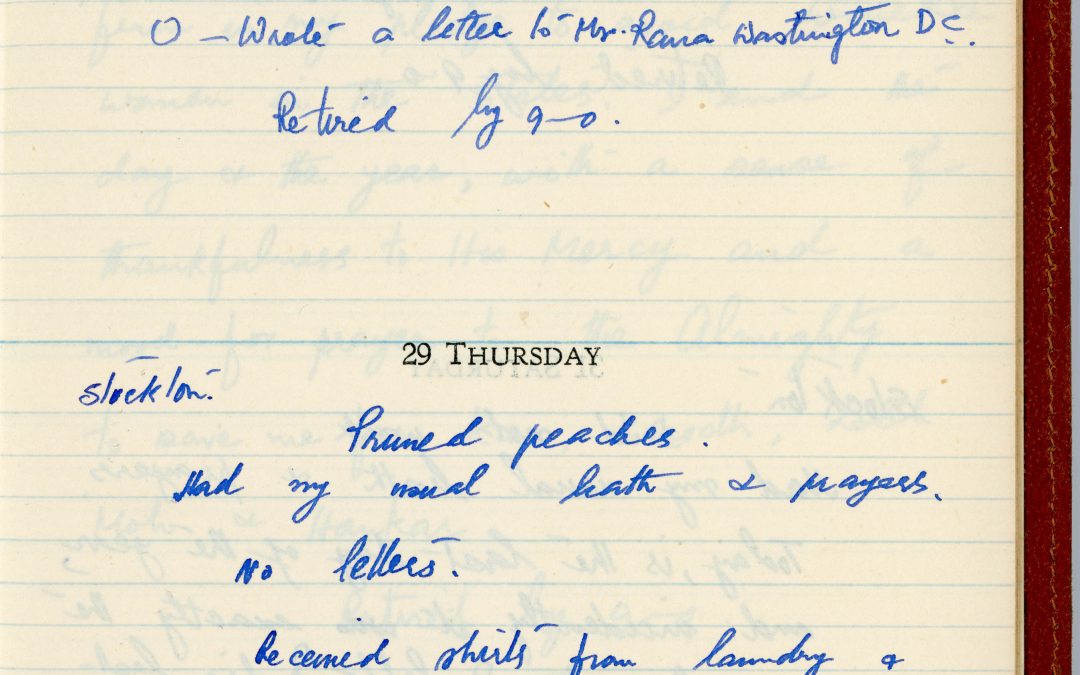 O – Wrote a letter to Mr. Rana Washington DC.
Retired by 9–0.
29 THURSDAY
Stockton.
Pruned peaches.
Had my usual bath & prayers.
No letters.
Received shirts from laundry &